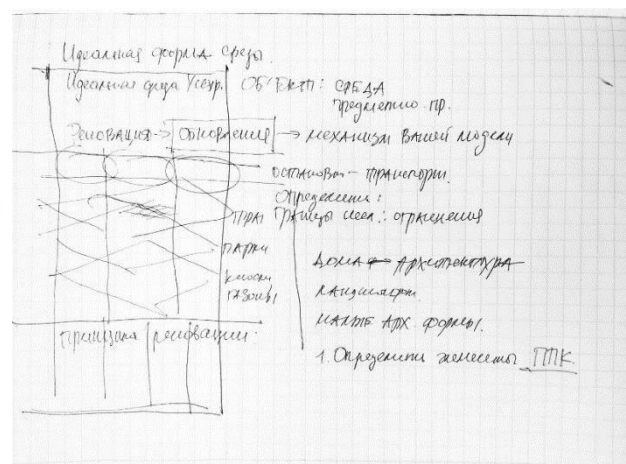 Идеальная форма среды.
Идеальная среда
ОБЪЕКТ: СРЕДА
предметно-пр.
Реновация → ОБНОВЛЕНИЯ → механизм вашей модели
остановки – транспорт.
Определении:
границы иссл.: ограничения
ПАРКИ
Киоски
газоны
ДОМА АРХИТЕКТУРА
Ландшафт
МАЛЫЕ АРХ. ФОРМЫ.
принципы реновации:
1. Определить элементы ППК.